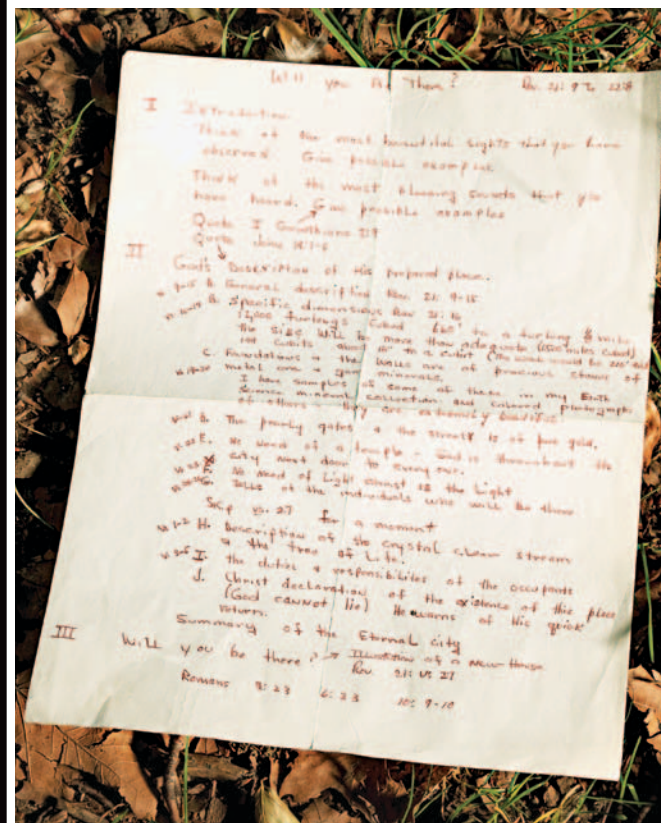 Will you be There? Rev. 21: 9 To 22:8
I Introduction
Think of the most beautiful sights that you have
observed. Give possible examples
Think of the most pleasing sounds that you
have heard. Give possible examples
Quote I Corinthians 2:9
Quote John 14:1-6
II God's Description of His prepared place.
A. General description Rev. 21: 9-15
B. Specific dimensions Rev 21: 16
12,000 furlongs cubed 660' to a furlong
The size will be more than adequate (1500 miles cubed)
144 cubits about 18" to a cubit (The walls would be
C. Foundations & the walls are of precious stones of
metal ore & gem minerals.
I have samples of some of these in my Earth
Science mineral collection and colored photographs
of others - They are extremely beautiful
D. The pearly gates & the street is of pure gold.
E. No need of a temple - God is throughout the
city next door to every one.
F. No need of Light Christ is the Light
G. Tells of the individuals who will be there
Skip vs. 27 for a moment
vs 1-2 H. Description of the crystal clear stream
& the tree of Life.
I. the duties & responsibilities of the occupants
J. Christ declaration of the existence of this place
(God cannot lie) He warns of His quick
return.
Summary of the Eternal city
III Will you be there? → Illustration of a New House
Rev. 21: vs 27
Romans 3:23 6:23 10: 9-10